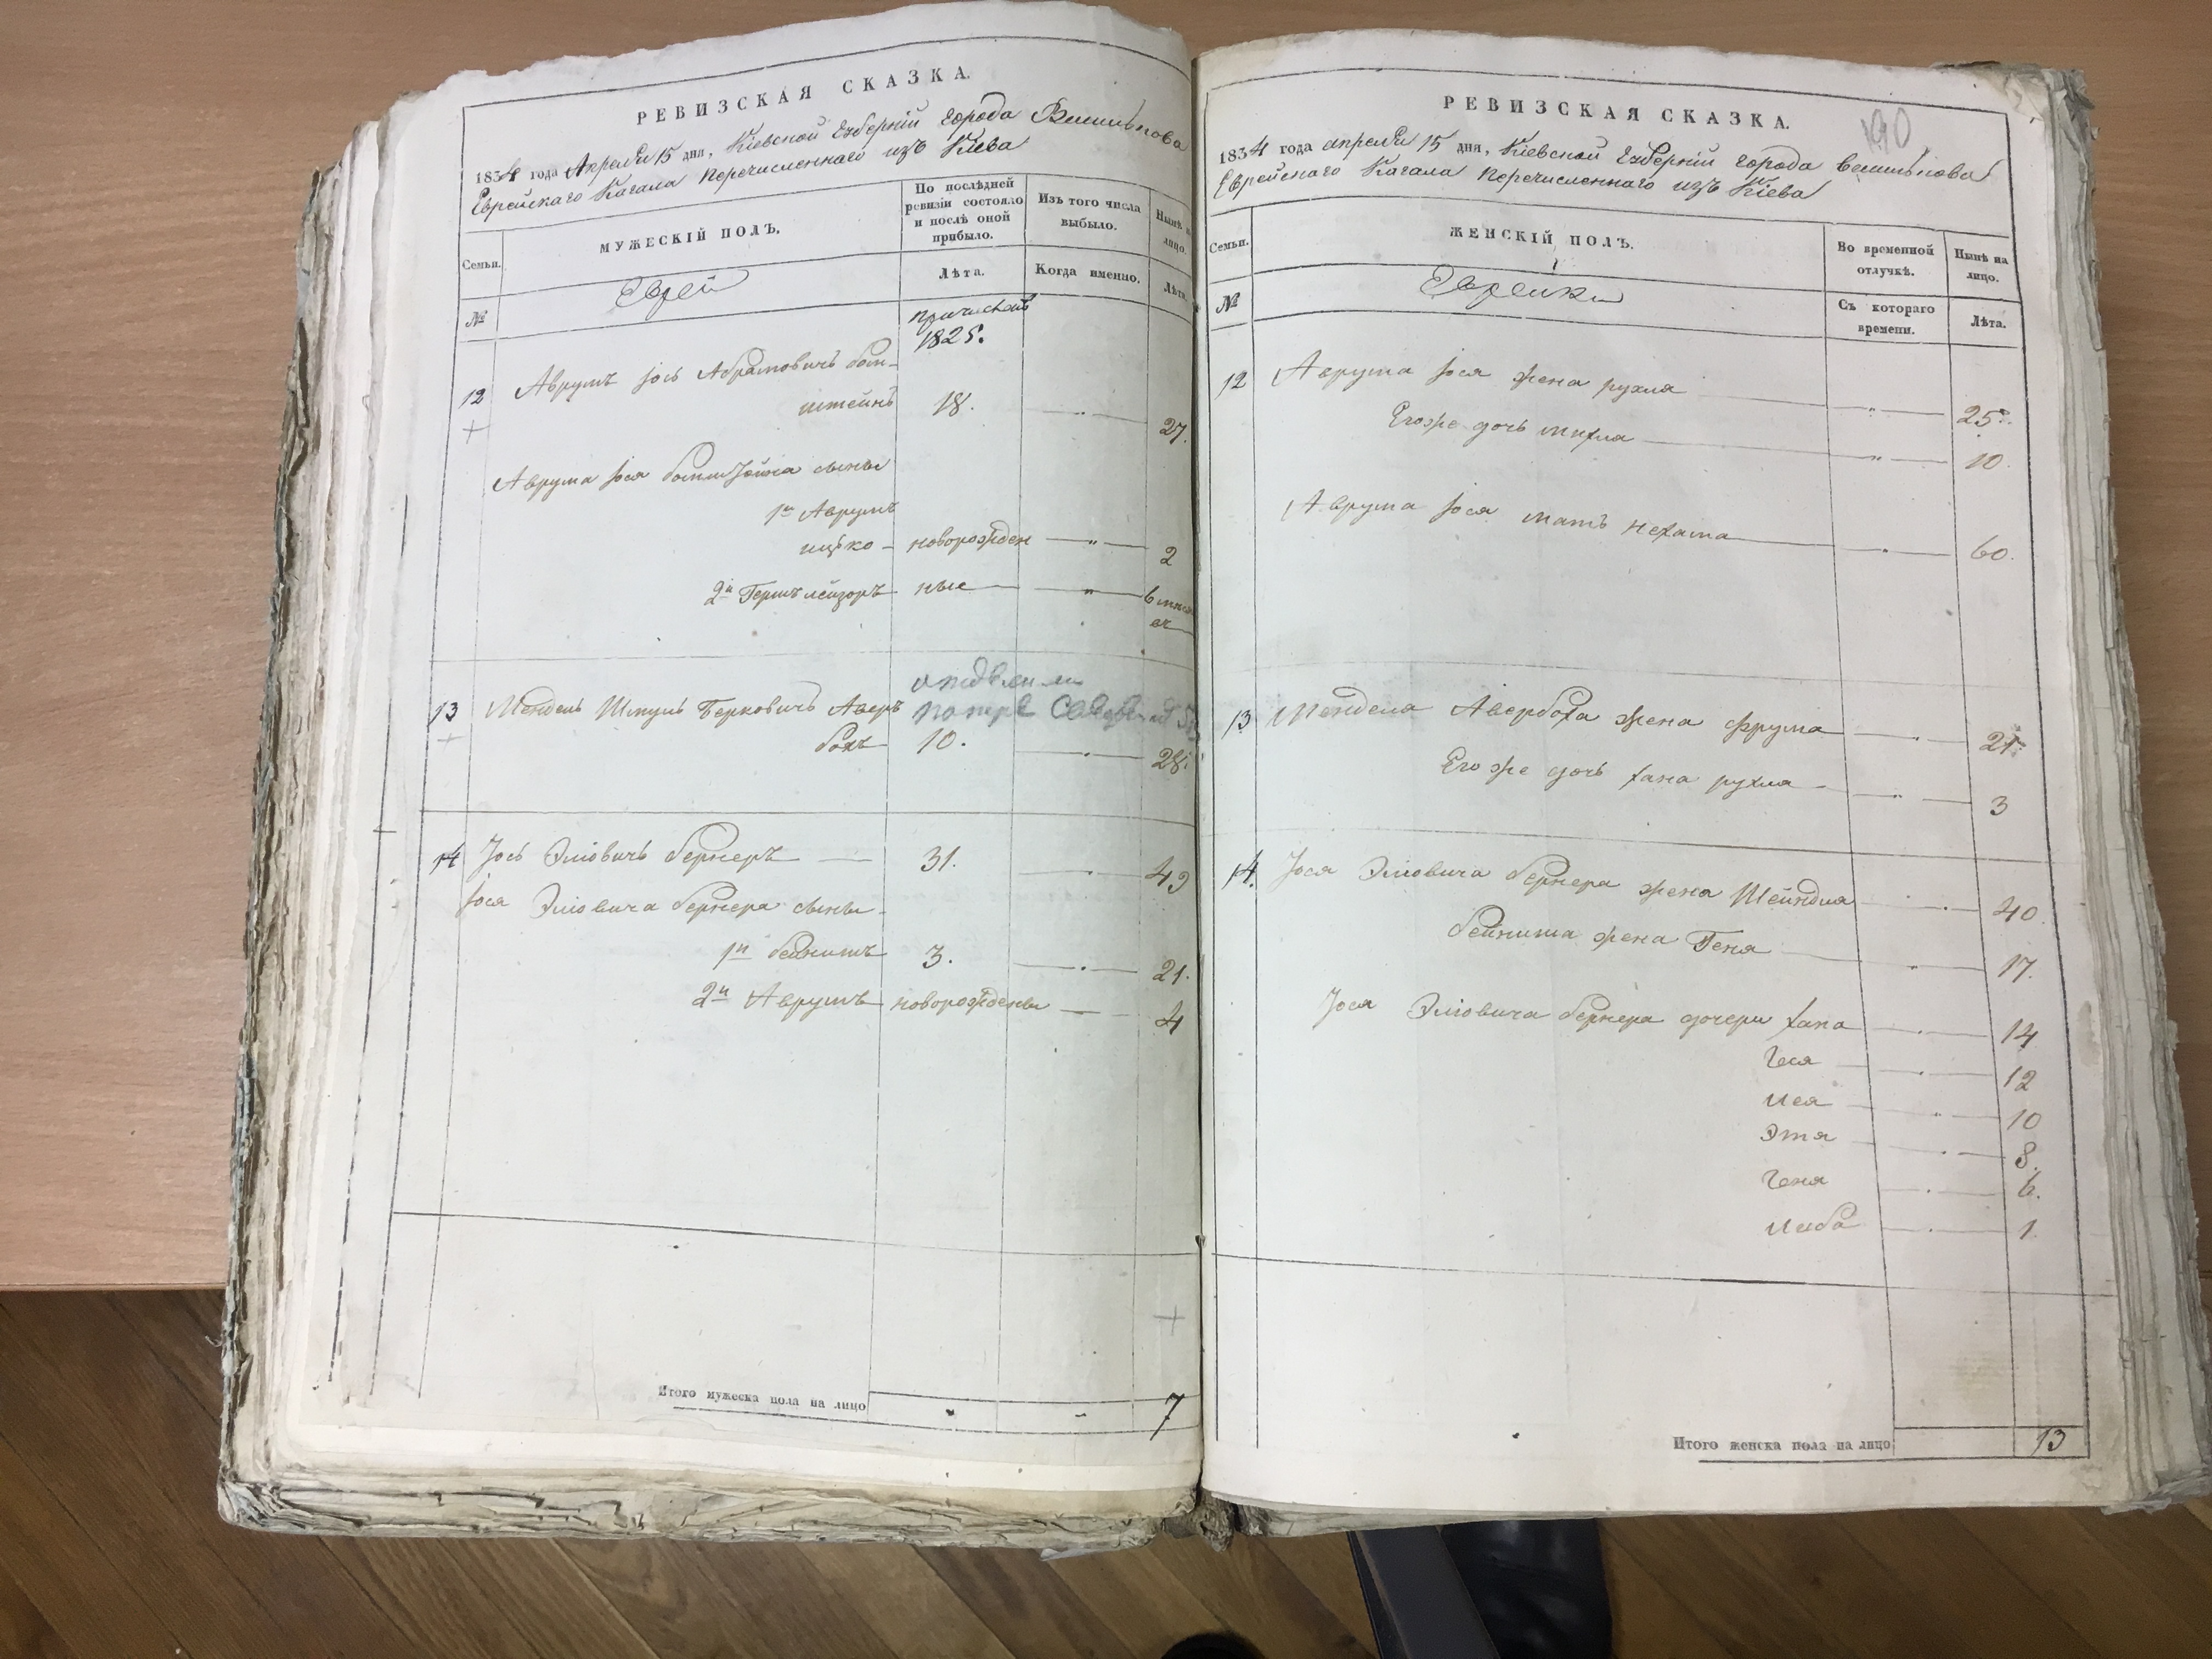 РЕВИЗСКАЯ СКАЗКА.
1834 года Апреля 15 дня, Кіевской Губерніи города Василькова
Еврейскаго Кагала перечисленнаго изъ Кіева
Семьи.
МУЖЕСКІЙ ПОЛЪ.
По послѣдней ревизіи состояло и послѣ оной прибыло.
Изъ того числа выбыло.
Нынѣ на лицо.
№
Еврей
Лѣта.
Когда именно.
Лѣта.
причисленъ
1825.
12 Аврумъ Іось Абрамовичъ бом-
штейнъ 18. 27.
Аврума Іося бомштейна сыны
1й Аврумъ
ицько - новорожден 2
2й Гершъ лейзоръ ные 6 меся
ец
13 Мендель Шмуль Берковичъ Авер
бохъ 10. 28.
14 Іось Эліовичъ бернеръ 31. 49
Іося Эліовича бернера сыны
1й бейнишъ 3. 21.
2й Аврумъ новорожденный 4
Итого мужеска пола на лицо 7
190
РЕВИЗСКАЯ СКАЗКА.
1834 года апреля 15 дня, Кіевской Губерніи города василькова
Еврейскаго Кагала перечисленнаго изъ Кіева
Семьи.
ЖЕНСКІЙ ПОЛЪ.
Во временной отлучкѣ.
Нынѣ на лицо.
№
Еврейки
Съ котораго времени.
Лѣта.
12 Аврума Іося жена рухля 25.
Егоже дочь михля 10.
Аврума Іося мать нехама 60.
13 Мендела Авербоха жена фрума 21
Его же дочь хана рухля 3
14. Іося Эліовича бернера жена Шейндля 40
бейниша жена Геня 17.
Іося Эліовича бернера дочери хана 14
Геся 12
Лея 10
Этя 8.
Геня 6.
Либа 1.
Итого женска пола на лицо 13